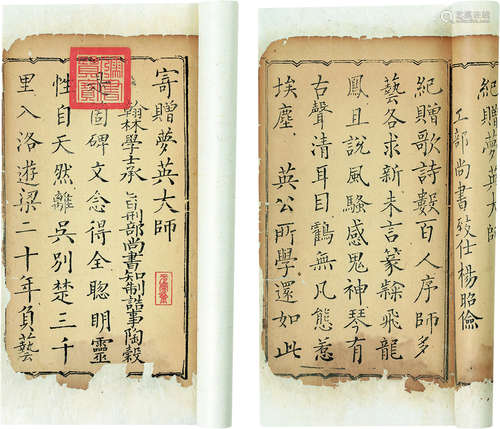 寄贈夢英大師
翰林學士承旨刑部尚書知制誥事陶穀
碑文念得全聰明靈
性自天然離吳別楚三千
里入洛遊梁二十年負藝
紀贈夢英大師
工部尚書致仕楊昭儉
紀贈歌詩數百人序師多
藝各求新未言篆隸飛龍
鳳且說風騷感鬼神琴有
古聲清耳目鶴無凡態惹
埃塵 英公所學還如此